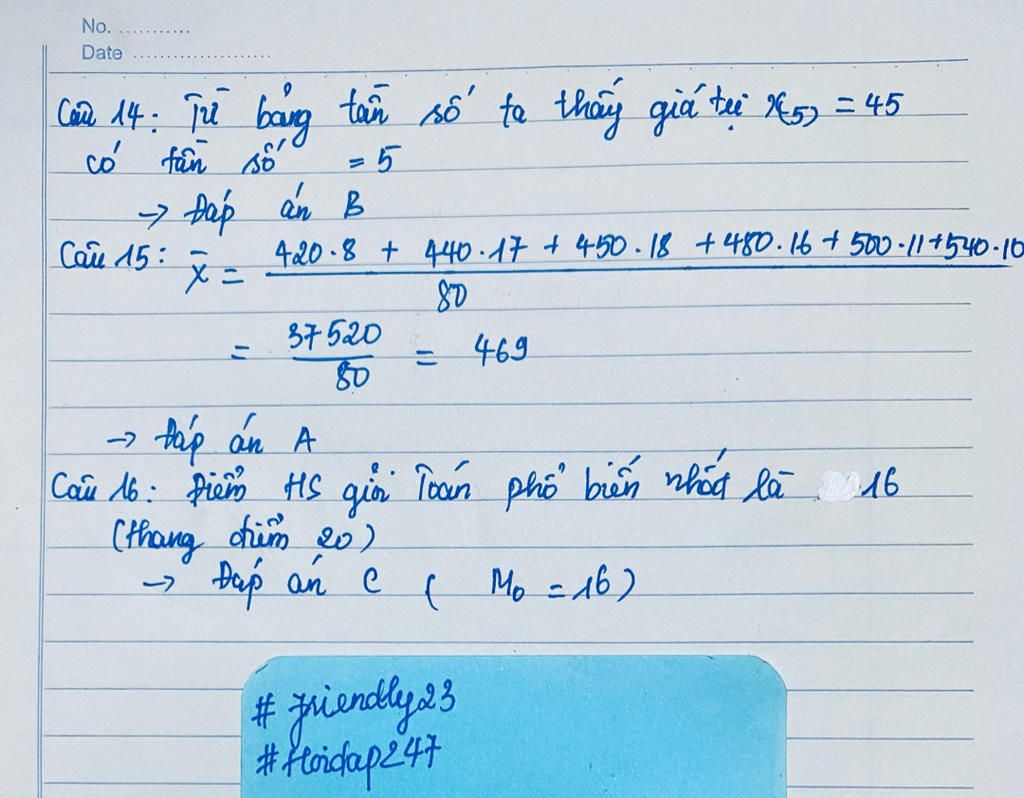 No. ...........
Date .....................
Câu 14: Từ bảng tần số ta thấy giá trị x(5) = 45
có tần số = 5
→ Đáp án B
Câu 15: x̄ = (420.8 + 440.17 + 450.18 + 480.16 + 500.11 + 540.10) / 80
= 37520 / 80 = 469
→ Đáp án A
Câu 16: Điểm HS giỏi Toán phổ biến nhất là 16
(thang điểm 20)
→ Đáp án C ( M₀ = 16)
# friendly23
#Hoidap247